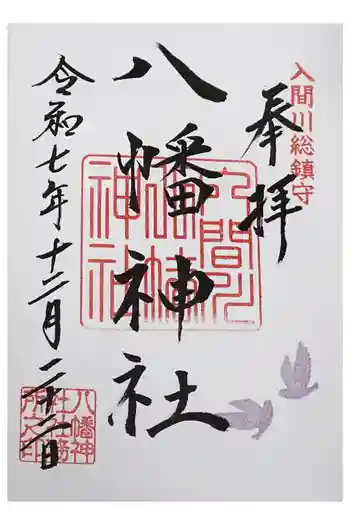 入間川総鎮守
奉拝
八幡神社
入間川
八幡
神社
令和七年十二月二十二日
八幡神
社社務
所之印